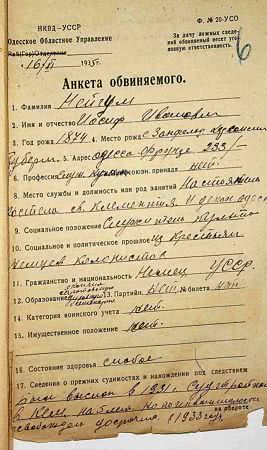 НКВД-УССР
Ф. № 20-УСО
Одесское Областное Управление
За дачу ложных сведений обвиняемый несет уголовную ответственность.
6
16/VI 1935г.
Анкета обвиняемого.
1. Фамилия Нейгум
2. Имя и отчество Иосиф Иванович
3. Год рожд 1874 4. Место рожд с Зельц
5. Адрес Одесса Фрунзе 233/
6. Профессия 7. Профсоюзн. принадл нет
8. Место службы и должность или род занятий Настоятель
костела св. Климентия и декан
9. Социальное положение Служитель культа
10. Социальное и политическое прошлое из крестьян
немцев колонистов
11. Гражданство и национальность Немец УССР.
12. Образование 13. Партийн. нет № билета нет
14. Категория воинского учета нет.
15. Имущественное положение нет.
16. Состояние здоровья слабое
17. Сведения о прежних судимостях и нахождении под следствием
был выслан в 1931 г. Судтройкой
в Кеми на 5 лет
освобожден досрочно (1933 году)
на обороте